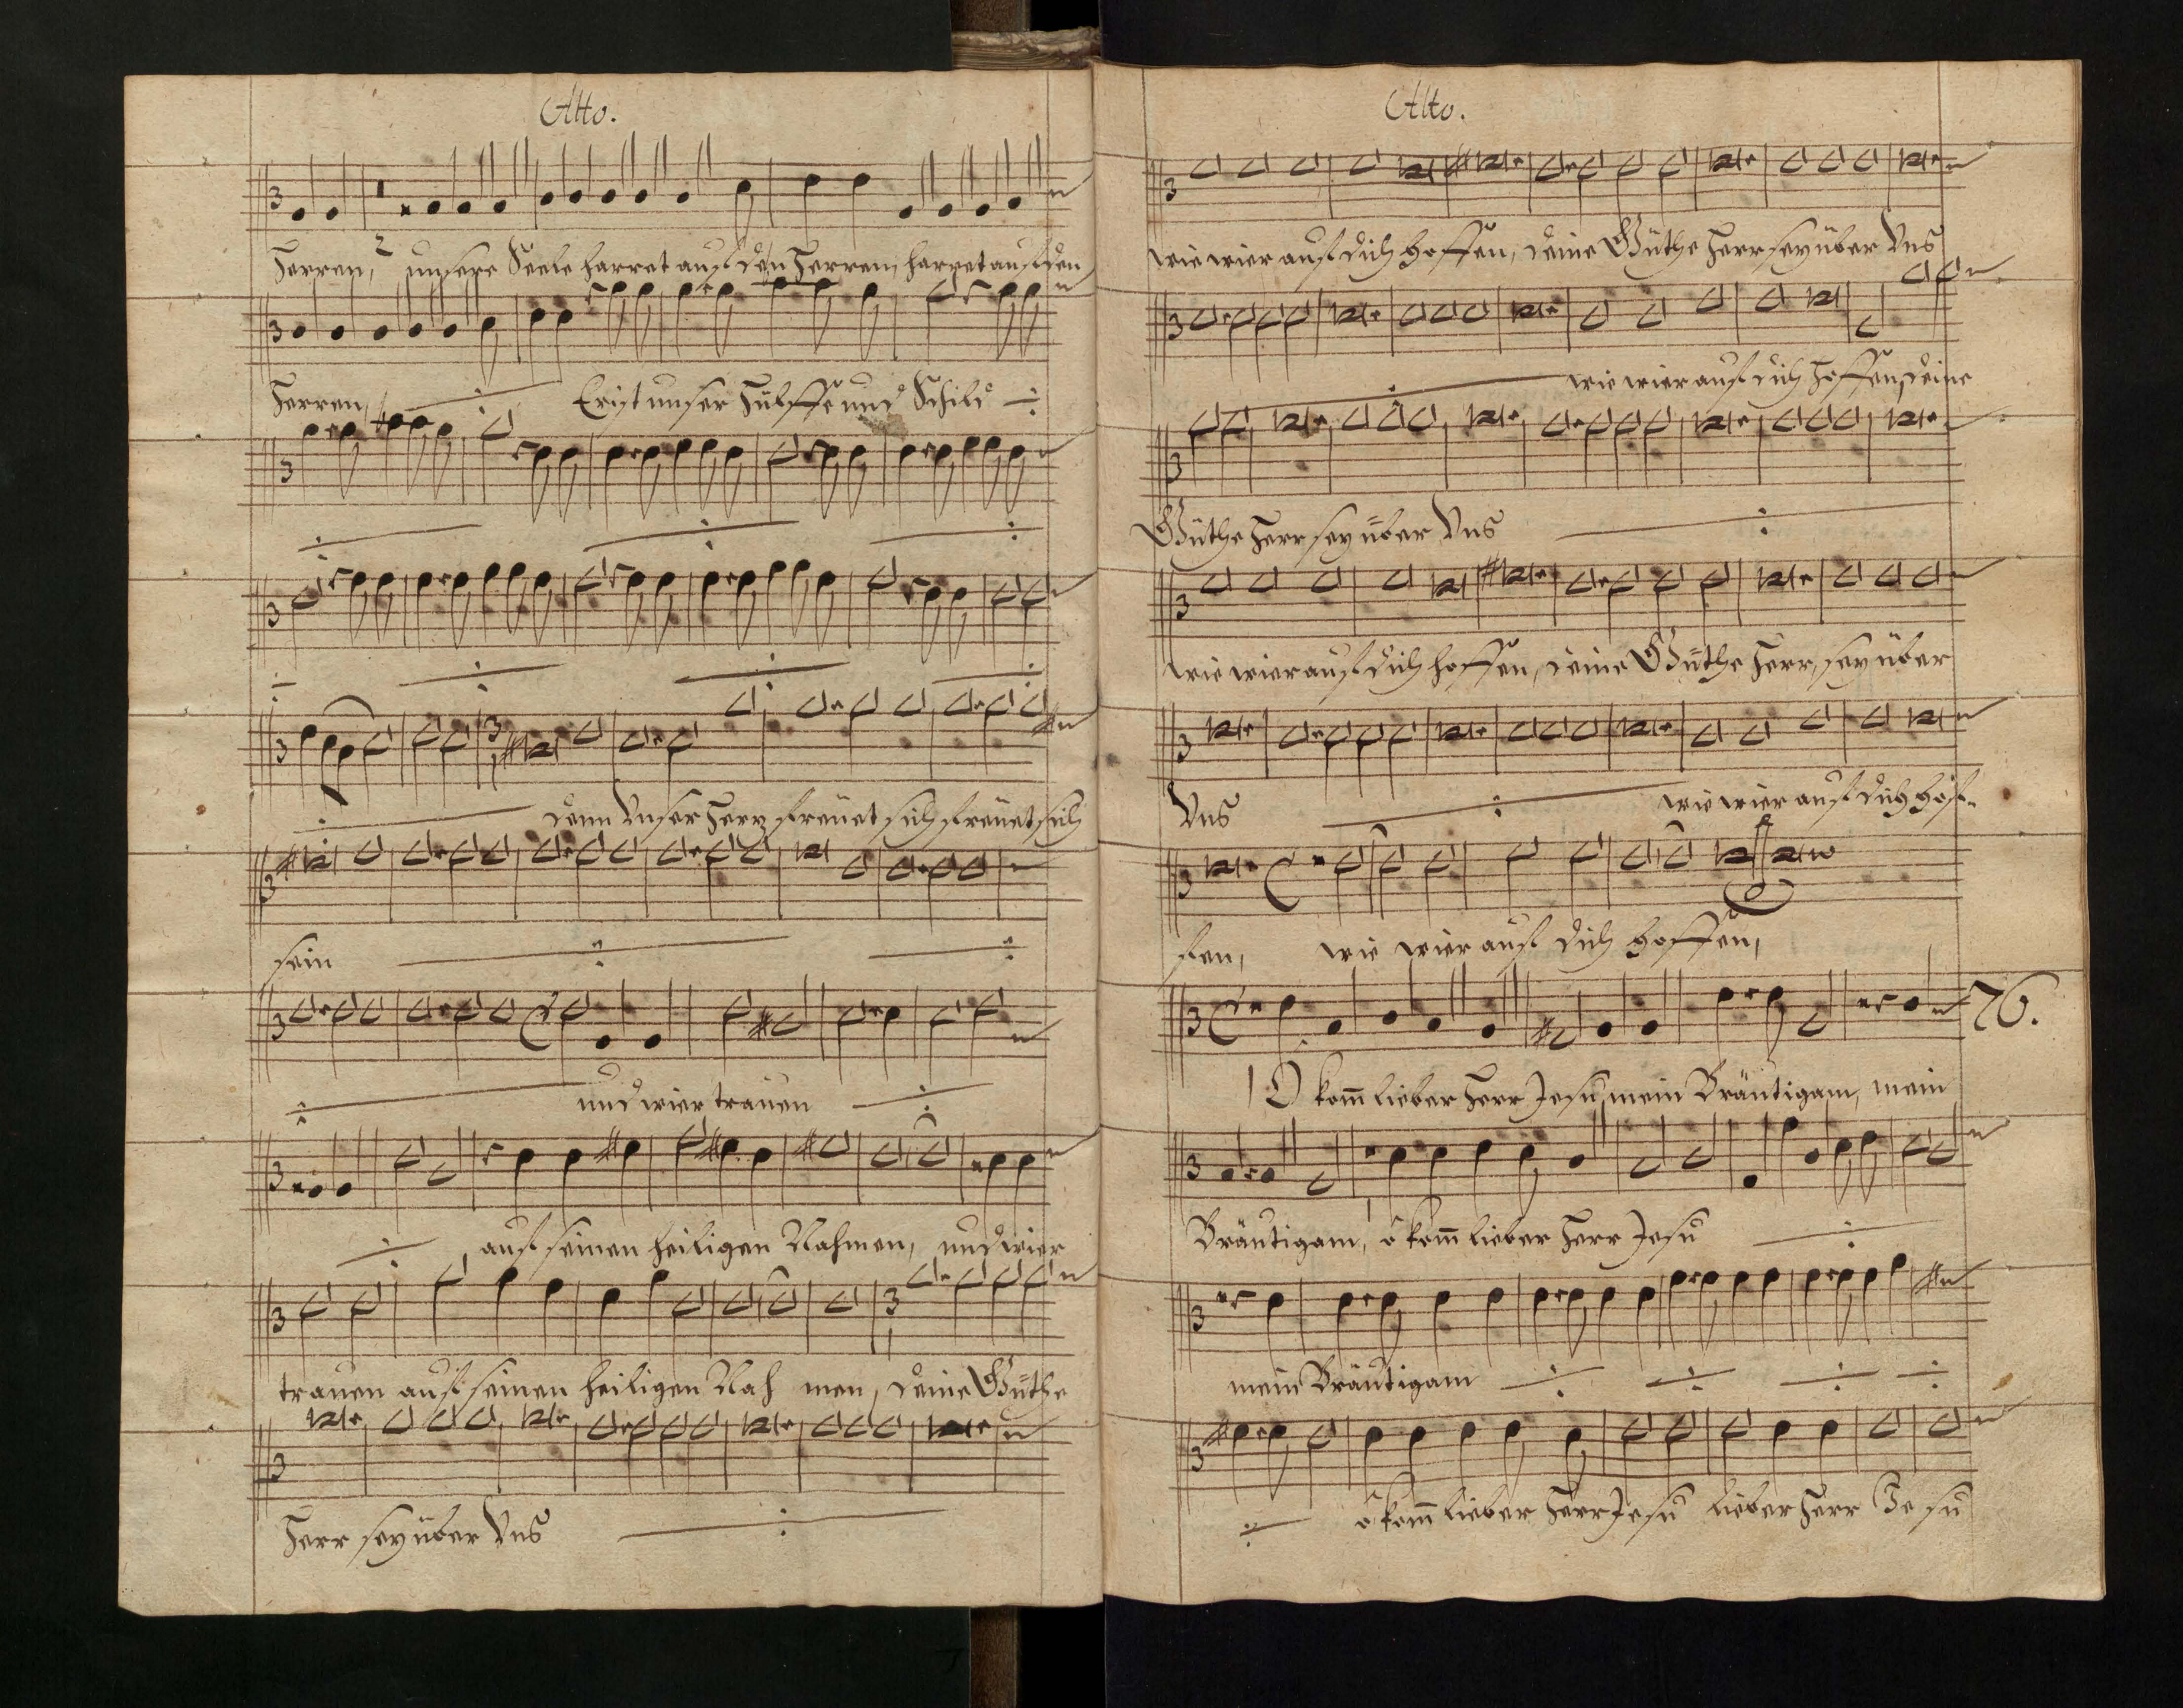 Alto.
Herren, unsere Seele harret auf den Herren, harret auf den
Herren, Er ist unser Hülffe und Schild
denn Unser Hertz freüet sich freüet sich
sein
und wier trauen
auf seinen heiligen Nahmen, und wier
trauen auf seinen heiligen Nah men, deine Güthe
Herr sey über Uns
Alto.
wie wier auf dich hoffen, deine Güthe Herr sey über Uns
wie wier auf dich Hoffen, deine
Güthe Herr sey über Uns
wie wier auf dich hoffen, deine Güthe Herr, sey über
Uns wie wier auf dich hof-
fen, wie wier auf dich hoffen,
76.
O kom̄ lieber Herr Jesu, mein Bräutigam, mein
Bräutigam, o kom̄ lieber Herr Jesu
mein Bräutigam
o kom̄ lieber Herr Jesu lieber Herr Je su